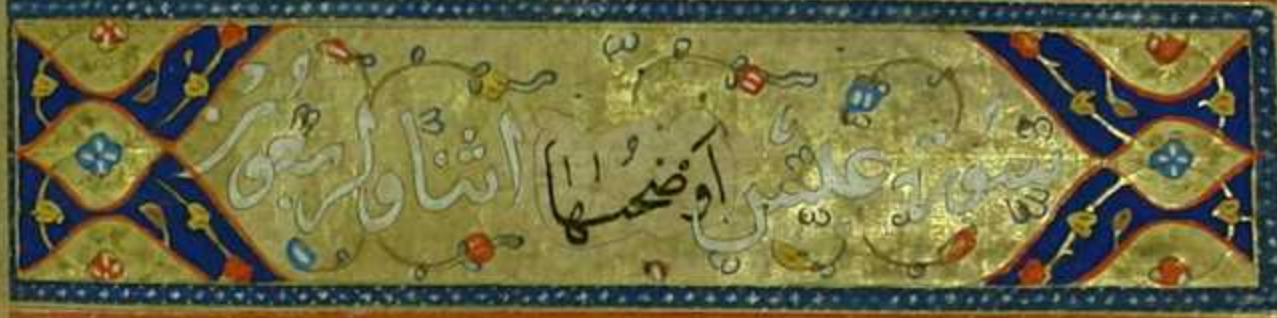 سورة عبس أو ضحىٰها اثنا واربعون